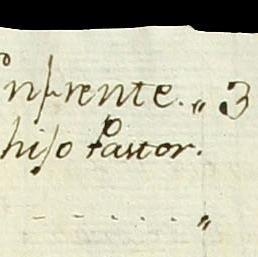 nfrente. „ 3
hiſo Pastor.
- - . . . . . „